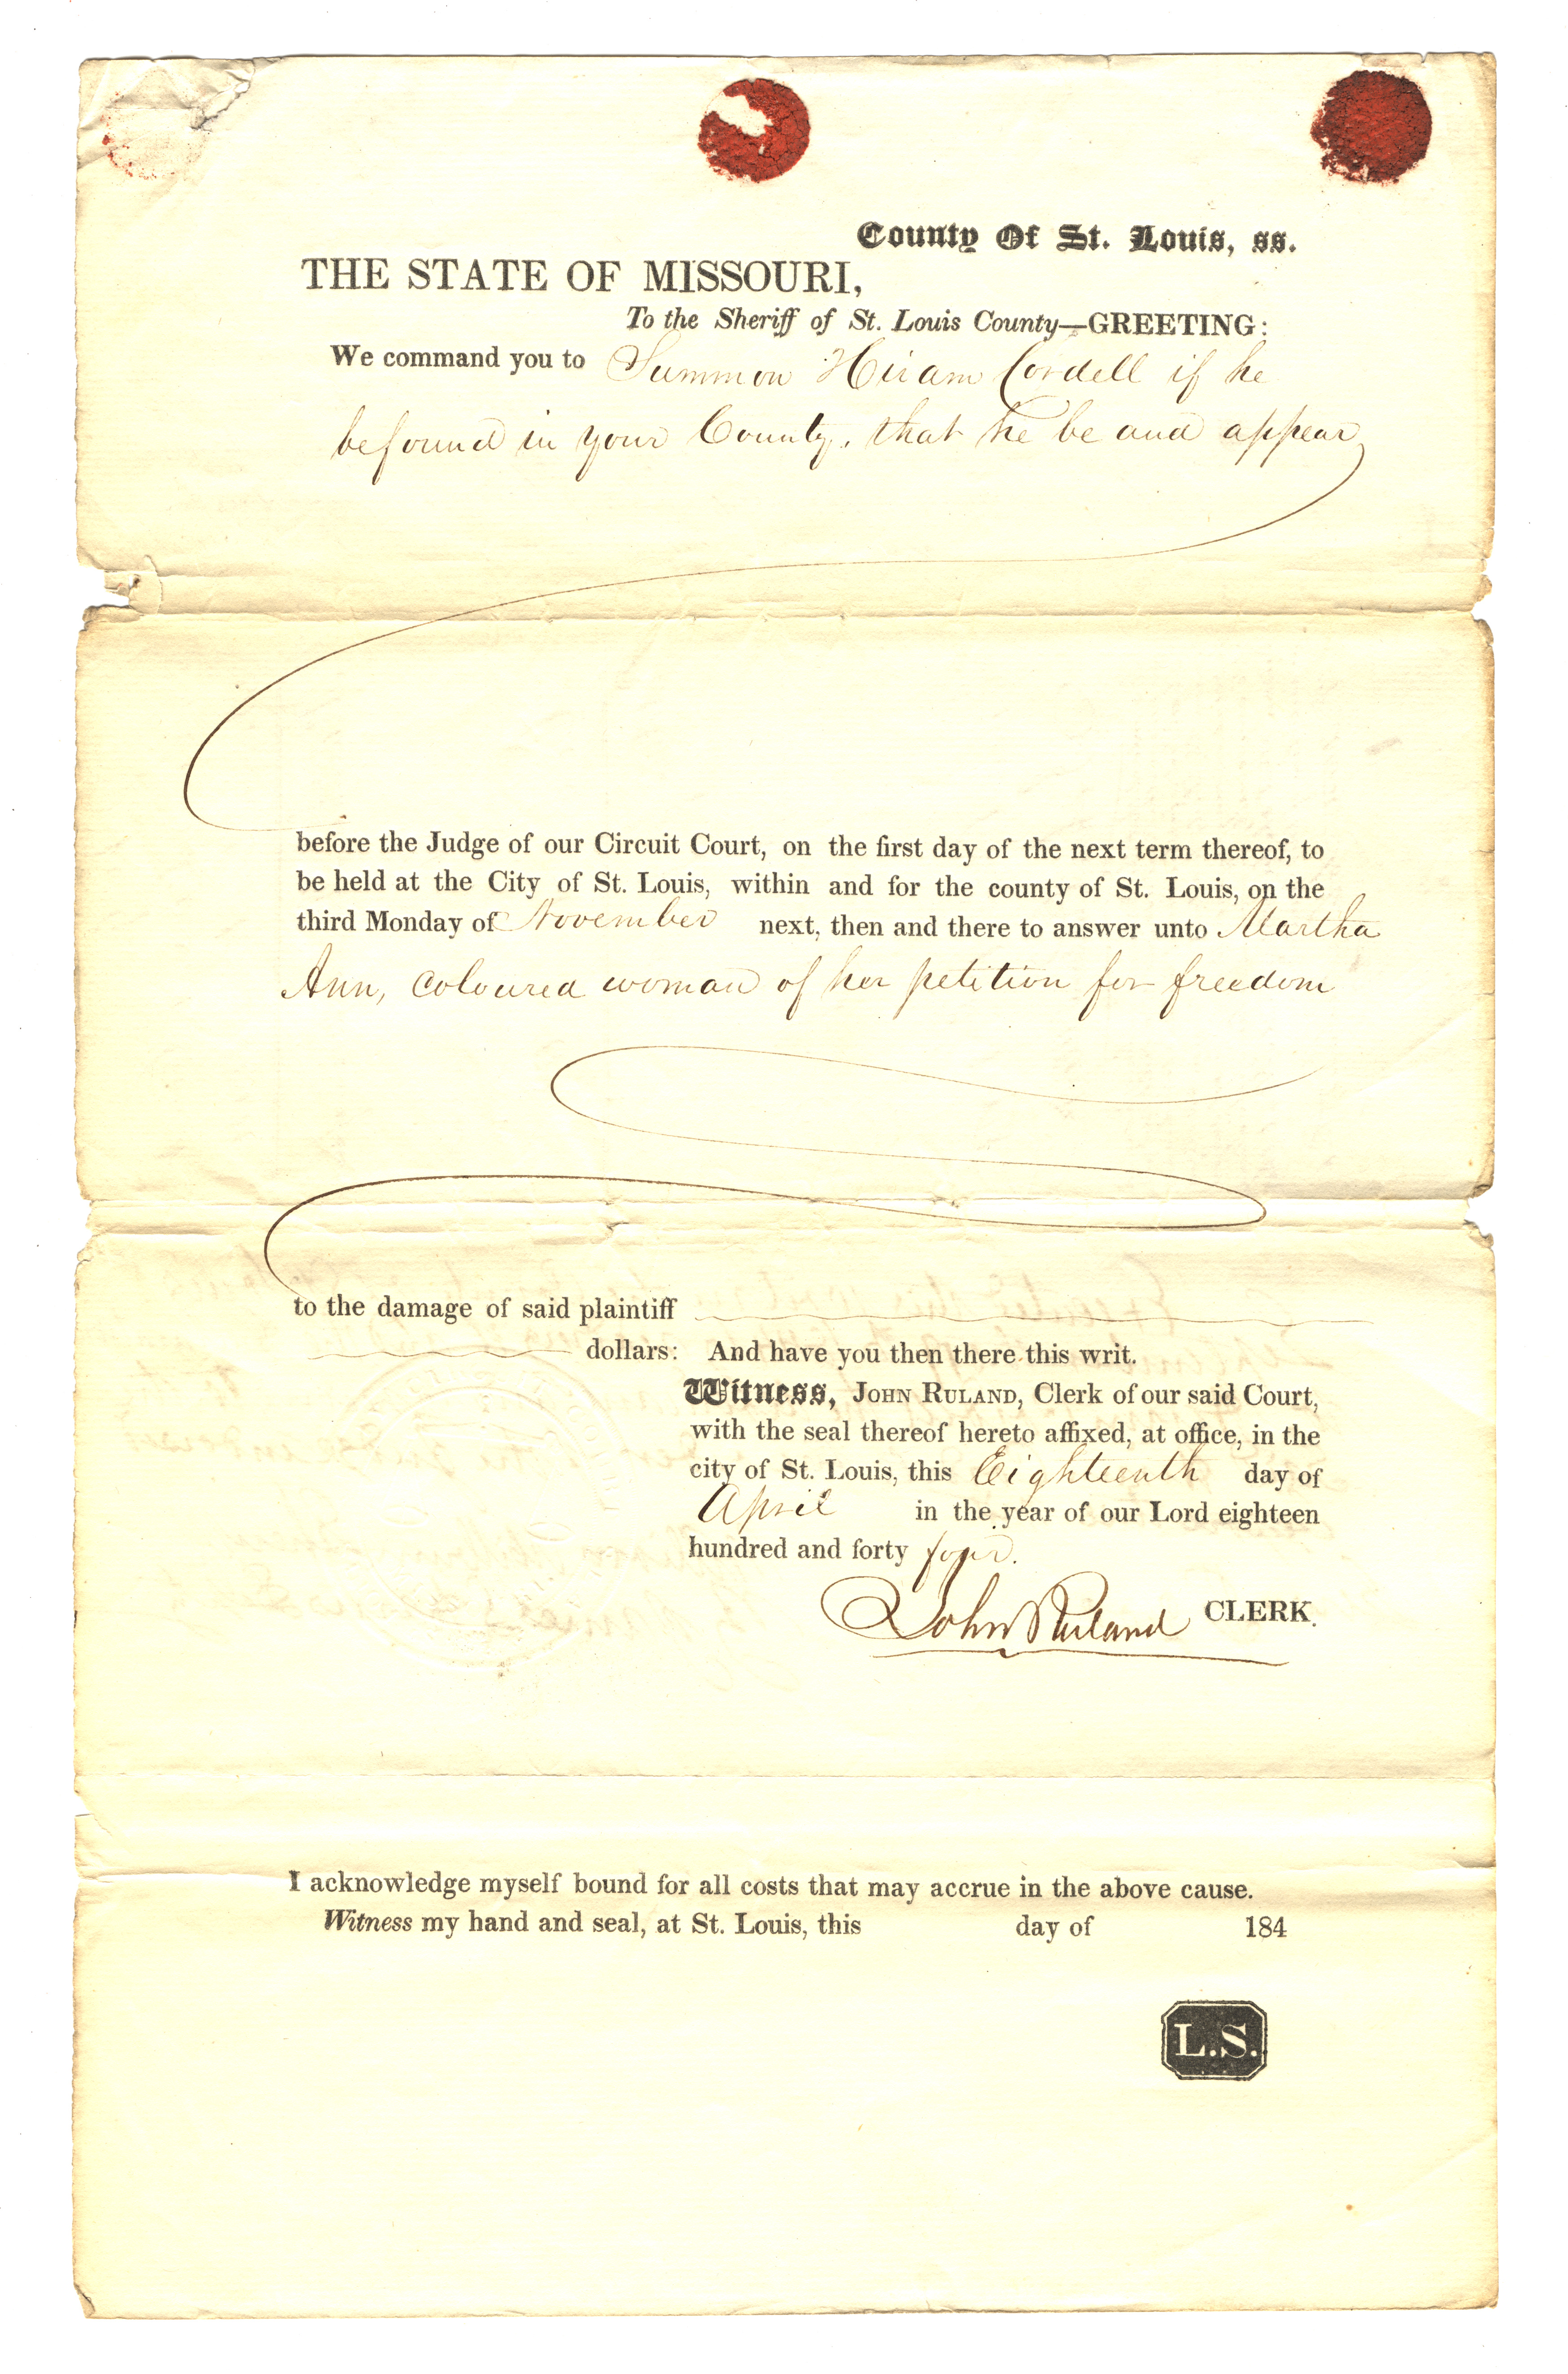 County Of St. Louis, ss.
THE STATE OF MISSOURI,
To the Sheriff of St. Louis County—GREETING:
We command you to Summon Hiram Cordell if he
be found in your County, that he be and appear
before the Judge of our Circuit Court, on the first day of the next term thereof, to
be held at the City of St. Louis, within and for the county of St. Louis, on the
third Monday of November next, then and there to answer unto Martha
Ann, coloured woman of her petition for freedom
to the damage of said plaintiff
dollars: And have you then there this writ.
Witness, JOHN RULAND, Clerk of our said Court,
with the seal thereof hereto affixed, at office, in the
city of St. Louis, this Eighteenth day of
April in the year of our Lord eighteen
hundred and forty four.
John Ruland CLERK.
I acknowledge myself bound for all costs that may accrue in the above cause.
Witness my hand and seal, at St. Louis, this day of 184
L.S.